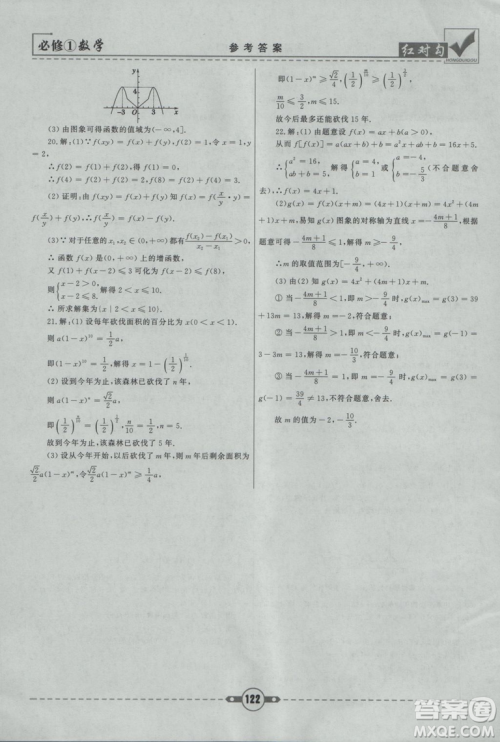 必修①数学
参考答案
红对勾
y
-3 O 3 x
(3) 由图象可得函数的值域为(-∞,4].
20.解:(1)因为f(xy)=f(x)+f(y),f(2)=1,令x=1,y=2,
∴f(2)=f(1)+f(2),得f(1)=0,
∴f(4)=f(2)+f(2)=2,f(8)=f(2)+f(4)=3.
(2)证明:由f(xy)=f(x)+f(y),可得f(x)=f(x/y·y)=
f(x/y)+f(y),∴f(x/y)=f(x)-f(y).
(3)∵对于任意的x₁,x₂∈(0,+∞)都有(f(x₂)-f(x₁))/(x₂-x₁)>0,
∴函数f(x)是(0,+∞)上的增函数,
又f(1)+f(x-2)≤3可化为f(x-2)≤f(8),
则{x-2>0, x-2≤8. 解得2<x≤10,
∴所求解集为{x|2<x≤10}.
21.解:(1)设每年砍伐面积的百分比为x(0<x<1).
则a(1-x)¹⁰=½a,
即(1-x)¹⁰=½,解得x=1-(½)^(1/10).
(2)设到今年为止,该森林已砍伐了n年,
则a(1-x)ⁿ=(√2/2)a,
即(½)^(n/10)=(½)^(1/2),n/10=½,n=5.
故到今年为止,该森林已砍伐了5年.
(3)设从今年开始,以后砍伐了m年,则m年后剩余面积为
(√2/2)a(1-x)ᵐ,令(√2/2)a(1-x)ᵐ≥¼a,
即(1-x)ᵐ≥√2/4,(½)^(m/10)≥(½)^(3/2),
m/10≤3/2,m≤15.
故今后最多还能砍伐15年.
22.解:(1)由题意设f(x)=ax+b(a>0),
从而f[f(x)]=a(ax+b)+b=a²x+ab+b=16x+5,
∴{a²=16, ab+b=5. 解得{a=4, b=1 或{a=-4, b=-5/3 (不合题意舍
去).∴f(x)=4x+1.
(2)g(x)=f(x)(x+m)=(4x+1)(x+m)=4x²+(4m+
1)x+m,易知g(x)图象的对称轴为直线x=-(4m+1)/8,根据
题意可得-(4m+1)/8≤1,解得m≥-9/4,
∴m的取值范围为[-9/4,+∞).
(3)由(2)知g(x)=4x²+(4m+1)x+m,
①当-(4m+1)/8<1时,m>-9/4,g(x)max=g(3)=39
+13m=13,解得m=-2,符合题意;
②当-(4m+1)/8>1时,m<-9/4,g(x)max=g(-1)=
3-3m=13,解得m=-10/3,符合题意;
③当-(4m+1)/8=1时,m=-9/4,g(x)max=g(3)=
g(-1)=39/4≠13,不合题意,舍去.
故m的值为-2,-10/3.
122
答案圈
MXQE.COM